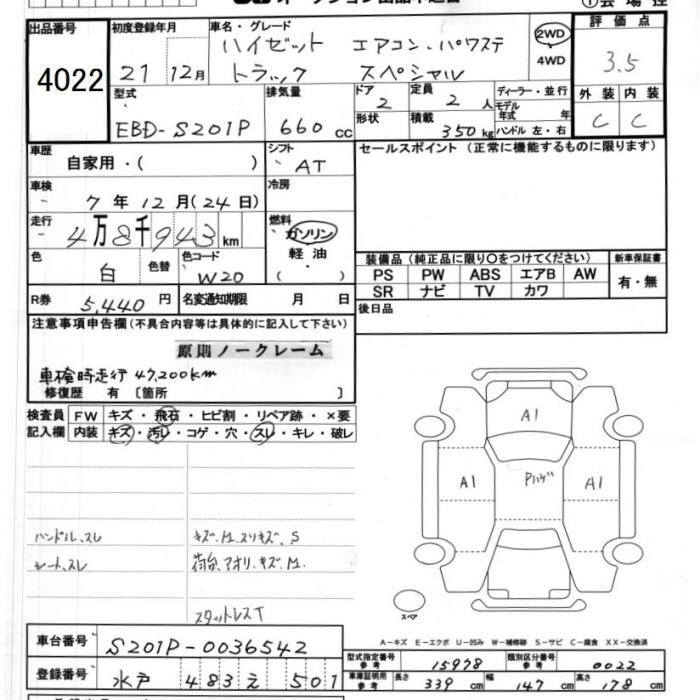 出品番号
4022
初度登録年月
21 12月
車名・グレード
ハイゼット エアコン、パワステ
トラック スペシャル
2WD
4WD
評価点
3.5
外装 内装
C C
型式
EBD-S201P
排気量
660 cc
ドア
2
形状
定員
2 人
積載
350 kg
ディーラー・並行
モデル年式 年
ハンドル 左・右
車歴
自家用・( )
シフト
AT
車検
7年12月(24日)
冷房
走行
4万8千943km
燃料
ガソリン
軽油
・( )
色
白
色替
色コード
W20
R券
5,440円
名変通知期限 月 日
セールスポイント(正常に機能するものに限ります)
装備品(純正品に限り○をつけてください)
PS PW ABS エアB AW
SR ナビ TV カワ
新車保証書
有・無
後日品
注意事項申告欄(不具合内容等は具体的に記入して下さい)
原則ノークレーム
車検時走行 47,200km
修復歴 有〔箇所 〕
検査員記入欄
FW キズ・飛石・ヒビ割・リペア跡・×要
内装 キズ・汚レ・コゲ・穴・スレ・キレ・破レ
ハンドル、スレ
シート、スレ
キズ、M、スリキズ、S
荷台、アオリ、キズ、M、
スタットレスT
A1
A1
Pハゲ
A1
スペア
A-キズ E-エクボ U-凹み W-補修跡 S-サビ C-腐食 XX-交換済
車台番号
S201P-0036542
登録番号
水戸 483え 501
型式指定番号
参考
15978
類別区分番号
参考
0022
車庫証明用
参考
長さ 339 cm 幅 147 cm 高さ 178 cm